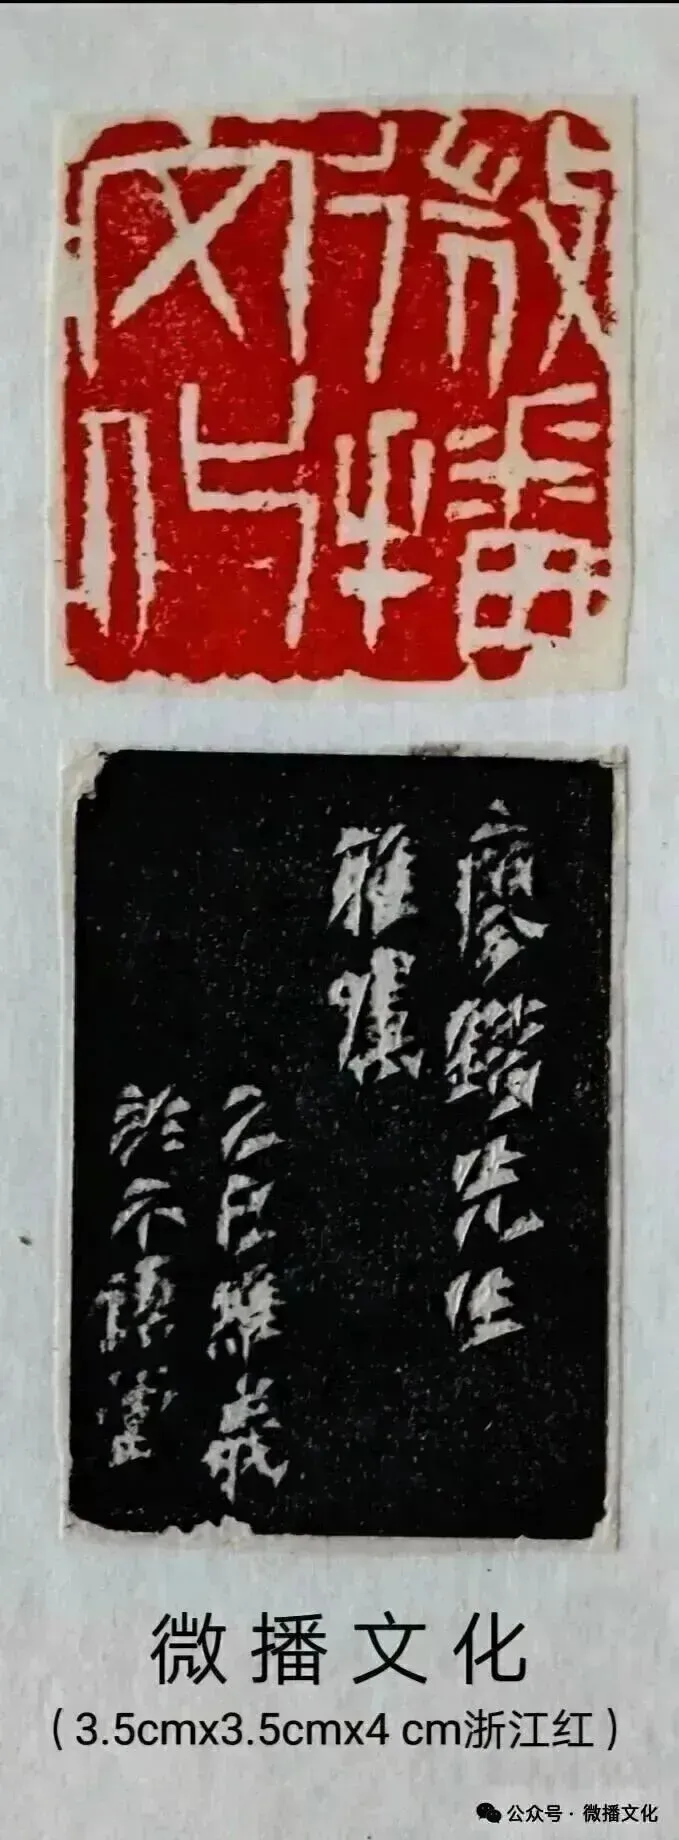 微播
文化
廖
先生
雅
乙巳羅義
於不語
微播文化
(3.5cmx3.5cmx4 cm浙江红)
公众号 · 微播文化